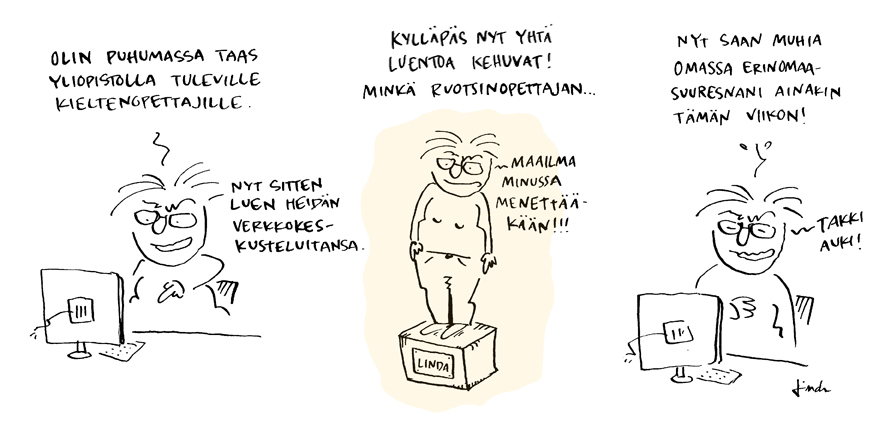 OLIN PUHUMASSA TAAS
YLIOPISTOLLA TULEVILLE
KIELTENOPETTAJILLE.
NYT SITTEN
LUEN HEIDÄN
VERKKOKES-
KUSTELUITANSA.
KYLLÄPÄS NYT YHTÄ
LUENTOA KEHUVAT!
MINKÄ RUOTSINOPETTAJAN...
MAAILMA
MINUSSA
MENETTÄÄ-
KÄÄN!!!
LINDA
NYT SAAN MUHIA
OMASSA ERINOMAA-
SUURESNANI AINAKIN
TÄMÄN VIIKON!
TAKKI
AUKI!
Linda